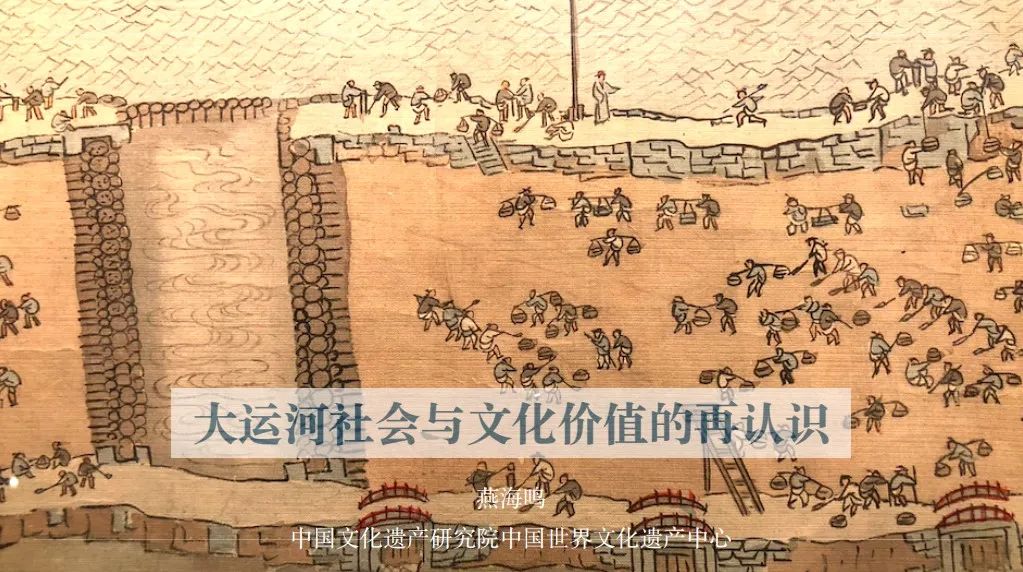 大运河社会与文化价值的再认识
燕海鸣
中国文化遗产研究院中国世界文化遗产中心